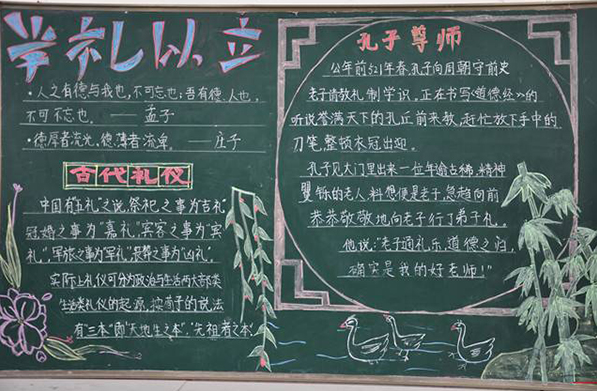 学礼以立
·人之有德与我也,不可忘也;吾有德人也,
不可不忘也。——孟子
·德厚者流光,德薄者流卑。——庄子
古代礼仪
中国有“五礼”之说,祭祀之事为吉礼
冠婚之事为“嘉礼”宾客之事为“宾
礼”,军旅之事为“军礼”,丧葬之事为“凶礼”。
实际上礼仪可分为政治与生活两大部类
生活类礼仪的起源,按荀子的说法
有“三本”,即“天地生之本”,“先祖者之本”
孔子尊师
公年前521年春,孔子向周朝守前史
老子请教礼制学识。正在书写《道德经》的
听说誉满天下的孔丘前来教,赶忙放下手中的
刀笔,整顿衣冠出迎。
孔子见大门里出来一位年逾古稀、精神
矍铄的老人,料想便是老子,急趋向前
恭恭敬敬地向老子行了弟子礼。
他说:“老子通礼乐,道德之归,
确实是我的好老师!”